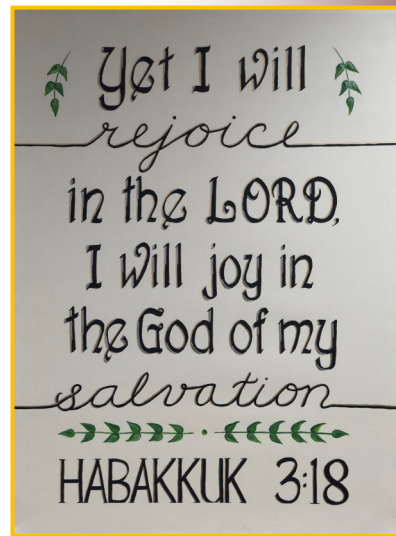 Yet I will
rejoice
in the LORD,
I will joy in
the God of my
salvation
HABAKKUK 3:18